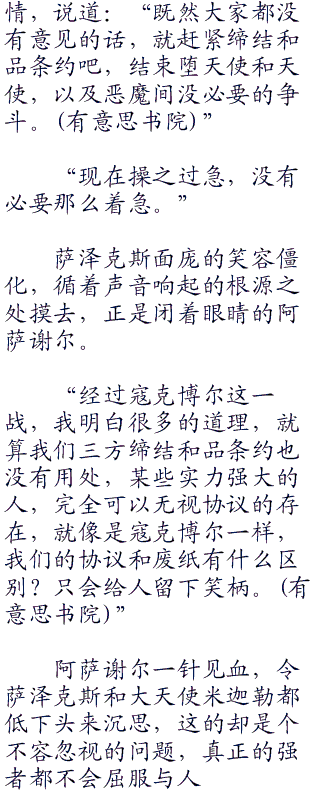 情，说道：“既然大家都没
有意见的话，就赶紧缔结和
品条约吧，结束堕天使和天
使，以及恶魔间没必要的争
斗。(有意思书院)”
“现在操之过急，没有
必要那么着急。”
萨泽克斯面庞的笑容僵
化，循着声音响起的根源之
处摸去，正是闭着眼睛的阿
萨谢尔。
“经过寇克博尔这一
战，我明白很多的道理，就
算我们三方缔结和品条约也
没有用处，某些实力强大的
人，完全可以无视协议的存
在，就像是寇克博尔一样，
我们的协议和废纸有什么区
别？只会给人留下笑柄。(有
意思书院)”
阿萨谢尔一针见血，令
萨泽克斯和大天使米迦勒都
低下头来沉思，这的却是个
不容忽视的问题，真正的强
者都不会屈服与人